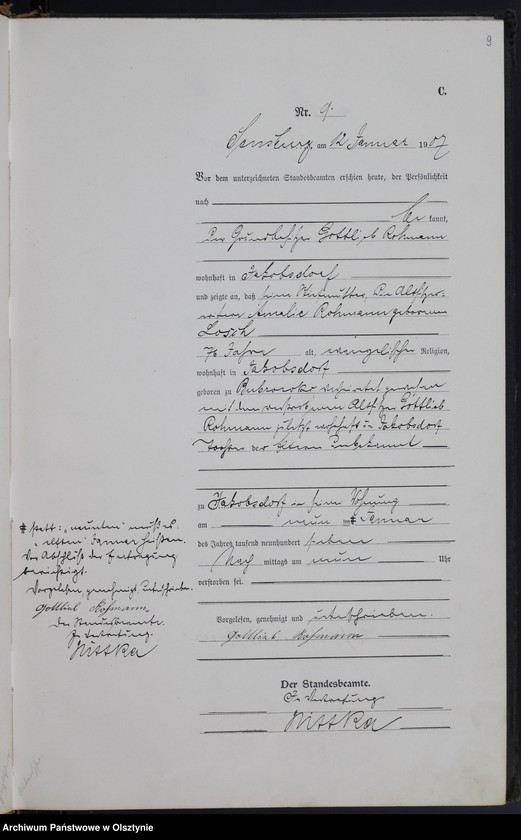 9
C.
Nr. 9.
Sensburg, am 12 Januar 1907
Vor dem unterzeichneten Standesbeamten erschien heute, der Persönlichkeit
nach
be kannt,
der Grundbesitzer Gottlieb Rohmann
wohnhaft in Jakobsdorf
und zeigte an, daß seine Stiefmutter, die Altsitzer-
witwe Amalie Rohmann geborene
Losch
76 Jahre alt, evangelischer Religion,
wohnhaft in Jakobsdorf
geboren zu verheiratet gewesen
mit dem verstorbenen Altsitzer Gottlieb
Rohmann zuletzt wohnhaft in Jakobsdorf
Tochter der Eltern unbekannt
zu Jakobsdorf in seiner Wohnung
am neunten Januar
des Jahres tausend neunhundert sieben
Nach mittags um neun Uhr
verstorben sei.
Vorgelesen, genehmigt und unterschrieben.
Gottlieb Rohmann
Der Standesbeamte.
In Vertretung
Nittka
statt: "neunten" muß es
"elften" Januar heißen.
Vor Abschluß der Eintragung
berichtigt.
Vorgelesen, genehmigt unterschrieben.
Gottlieb Rohmann
Der Standesbeamte.
In Vertretung.
Nittka
Archiwum Państwowe w Olsztynie